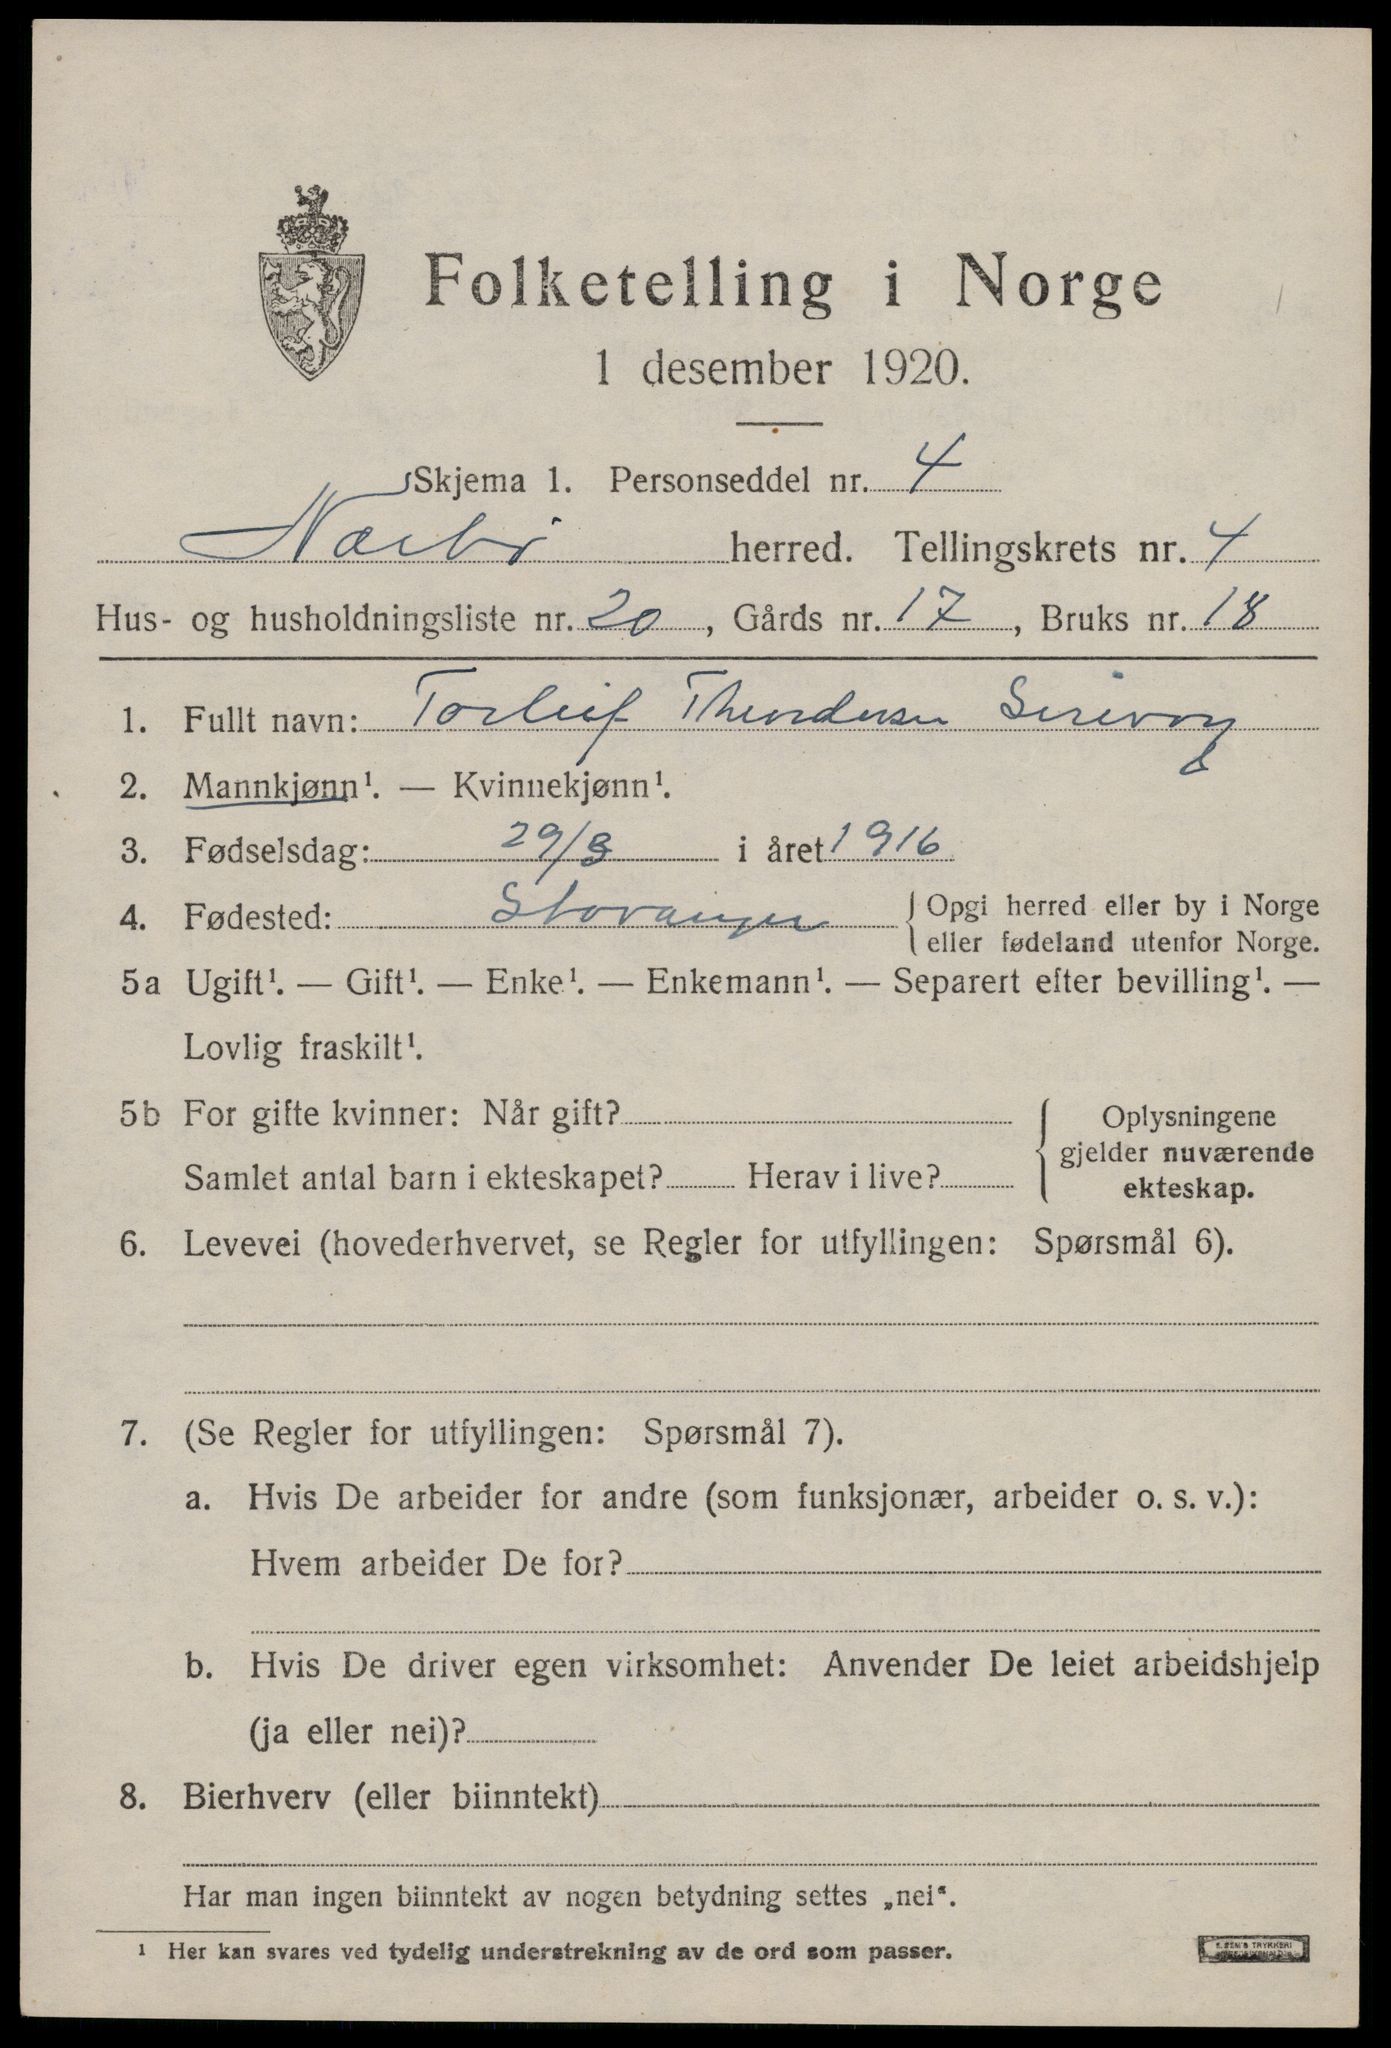 Folketelling i Norge
1 desember 1920.
Skjema 1. Personseddel nr. 4
Nærbø herred. Tellingskrets nr. 4
Hus- og husholdningsliste nr. 20, Gårds nr. 17, Bruks nr. 18
1. Fullt navn: Torleif Theodorsen Sirevog
2. Mannkjønn¹. — Kvinnekjønn¹.
3. Fødselsdag: 29/8 i året 1916
4. Fødested: Stavanger { Opgi herred eller by i Norge
eller fødeland utenfor Norge.
5a Ugift¹. — Gift¹. — Enke¹. — Enkemann¹. — Separert efter bevilling¹. —
Lovlig fraskilt¹.
5b For gifte kvinner: Når gift? { Oplysningene
gjelder nuværende
Samlet antal barn i ekteskapet? Herav i live? ekteskap.
6. Levevei (hovederhvervet, se Regler for utfyllingen: Spørsmål 6).
7. (Se Regler for utfyllingen: Spørsmål 7).
a. Hvis De arbeider for andre (som funksjonær, arbeider o. s. v.):
Hvem arbeider De for?
b. Hvis De driver egen virksomhet: Anvender De leiet arbeidshjelp
(ja eller nei)?
8. Bierhverv (eller biinntekt)
Har man ingen biinntekt av nogen betydning settes „nei“.
¹ Her kan svares ved tydelig understrekning av de ord som passer.